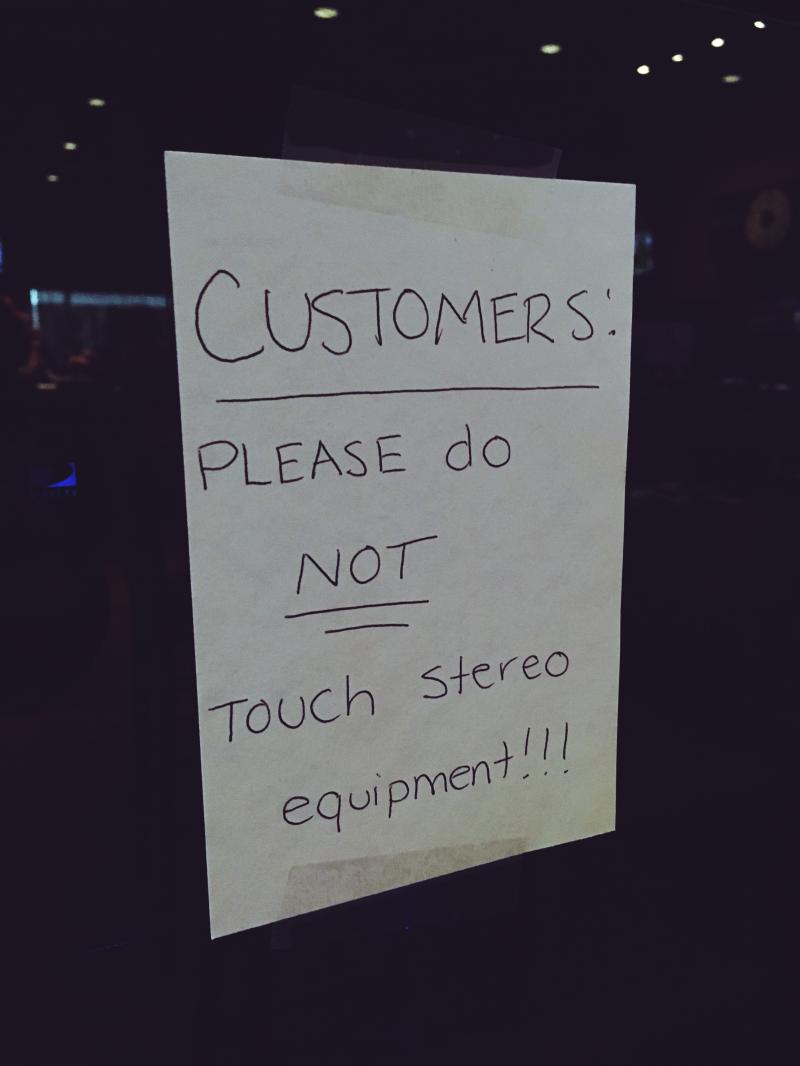 CUSTOMERS:
PLEASE do
NOT
TOUCh stereo
equipment!!!